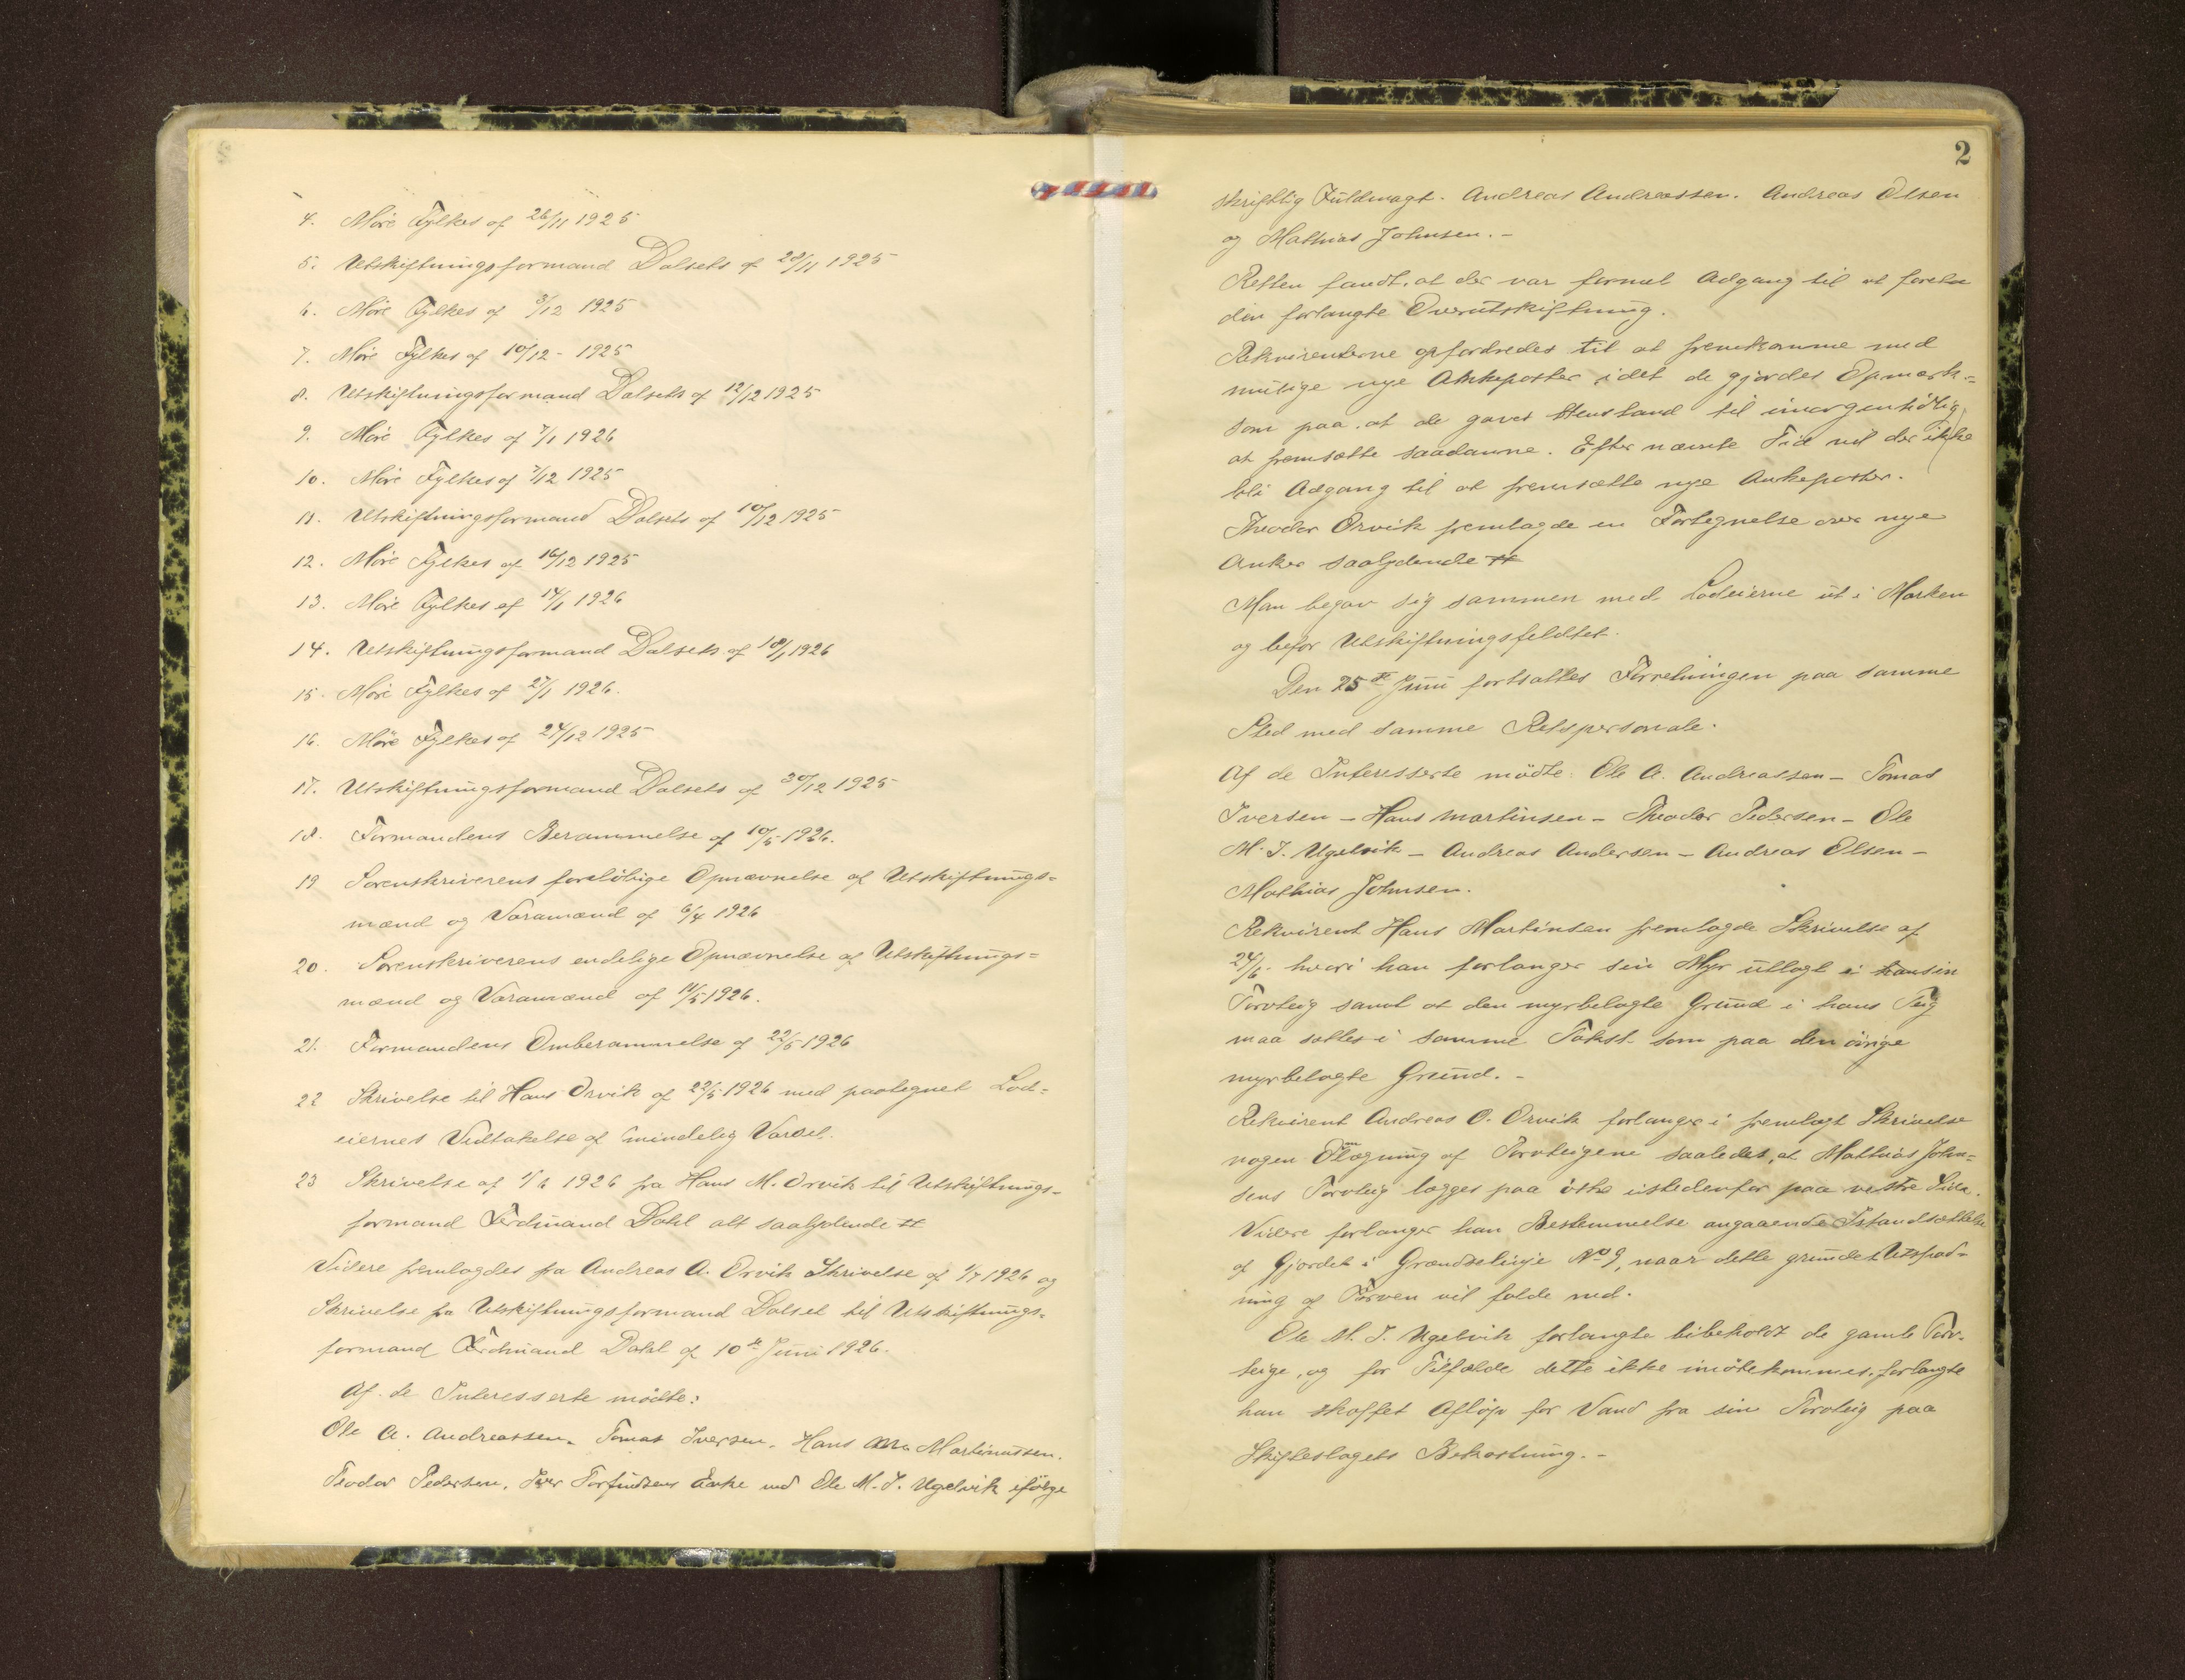 4. Möre Fylkes af 26/11 1925
5. Utskiftningsformand Dalsets af 28/11 1925
6. Möre Fylkes af 3/12 1925
7. Möre Fylkes af 10/12 - 1925
8. Utskiftningsformand Dalsets af 12/12 1925
9. Möre Fylkes af 7/1 1926
10. Möre Fylkes af 7/12 1925
11. Utskiftningsformand Dalsets af 10/12 1925
12. Möre Fylkes af 16/12 1925
13. Möre Fylkes af 14/1 1926
14. Utskiftningsformand Dalsets af 18/1 1926
15. Möre Fylkes af 27/1 1926.
16. Möre Fylkes af 24/12 1925
17. Utskiftningsformand Dalsets af 30/12 1925
18. Formandens Berammelse af 10/5 1926.
19 Sorenskriverens forelöbige Opnævnelse af Utskiftnings-
mænd og Varamænd af 6/4 1926
20. Sorenskriverens endelige Opnævnelse af Utskiftnings-
mænd og Varamænd af 11/5 1926.
21. Formandens Omberammelse af 22/5 1926
22 Skrivelse til Hans Orvik af 22/5 1926 med paategnet Lod-
eiernes Vedtakelse af mindelig Varsel.
23 Skrivelse af 1/6 1926 fra Hans M. Orvik til Utskiftnings-
formand Ferdinand Dahl alt saalydende #
Videre fremlagdes fra Andreas A. Orvik Skrivelse af 1/7 1926 og
Skrivelse fra Utskiftningsformand Dalset til Utskiftnings-
formand Ferdinand Dahl af 10de Juni 1926.
Af de Interesserte mödte:
Ole A. Andreassen. Tomas Iversen. Hans Martinussen.
Teodor Pedersen. Iver Torfindsens Enke ved Ole M. I. Ugelvik ifölge
2
skriftlig Fuldmagt. Andreas Andreassen. Andreas Olsen
og Mathias Johnsen. -
Retten fandt, at der var formel Adgang til at foreta
den forlangte Overutskiftning.
Rekvirenterne opfordredes til at fremkomme med
mulige nye Ankeposter, idet de gjordes Opmærk-
som paa, at de gaves Henstand til imorgentidlig
at fremsætte saadanne. Efter nævnte Tid vil der ikke
bli Adgang til at fremsætte nye Ankeposter.
Theodor Orvik fremlagde en Fortegnelse over nye
Anker saalydende #
Man begav sig sammen med Lodeierne ut i Marken
og befor Utskiftningsfeldtet.
Den 25de Juni fortsattes Forretningen paa samme
Sted med samme Retspersonale.
Af de Interesserte mödte: Ole A. Andreassen - Tomas
Iversen - Hans Martinsen - Theodor Pedersen - Ole
M. I. Ugelvik - Andreas Andersen - Andreas Olsen -
Mathias Johnsen.
Rekvirent Hans Martinsen fremlagde Skrivelse af
24/6. hvori han forlanger sin Myr utlagt i sin
Torvteig samt at den myrbelagte Grund i hans Teig
maa sættes i samme Takst som paa den övrige
myrbelagte Grund. -
Rekvirent Andreas O. Orvik forlanger i fremlagt Skrivelse
nogen Omlægning af Torvteigene saaledes, at Mathias John-
sens Torvteig lægges paa östre istedenfor paa vestre Side.
Videre forlanger han Bestemmelse angaaende Istandsættelse
af Gjerdet i Grændselinje No 9, naar dette grundet Utspad-
ning af Torven vil falde ned.
Ole M. I. Ugelvik forlangte bibeholdt de gamle Torv-
teige, og for Tilfælde dette ikke imötekommes, forlangte
han skaffet Aflöp for Vand fra sin Torvteig paa
Skifteslagets Bekostning. -